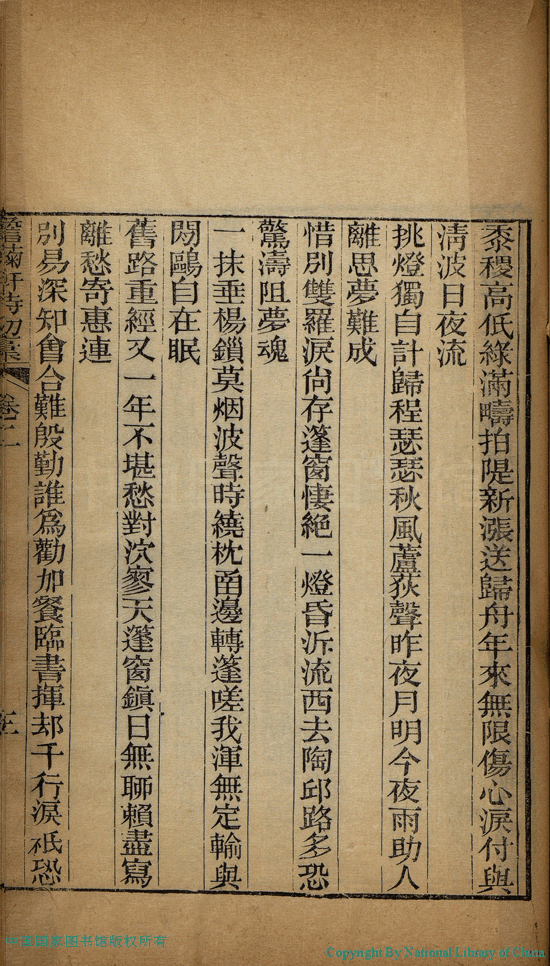 黍稷高低綠滿疇拍隄新漲送歸舟年來無限傷心淚付與
淸波日夜流
挑燈獨自計歸程瑟瑟秋風蘆荻聲昨夜月明今夜雨助人
離思夢難成
惜別雙羅淚尙存蓬窗悽絕一燈昏泝流西去陶邱路多恐
驚濤阻夢魂
一抹垂楊鎖莫烟波聲時繞枕函邊轉蓬嗟我渾無定輸與
閒鷗自在眠
舊路重經又一年不堪愁對泬寥天蓬窗鎭日無聊賴盡寫
離愁寄惠連
別易深知會合難殷勤誰爲勸加餐臨書揮却千行淚祇恐
詩初藁 卷二
中国国家图书馆版权所有
Copyright By National Library of China